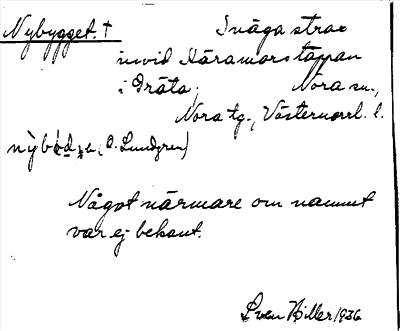 Nybygget. † Inäga strax
invid Häramorstäppan
i Gräta; Nora sn.,
Nora tg., Västernorrl. l.
(O. Lundgren)
Något närmare om namnet
var ej bekant.
Sven Hiller 1936